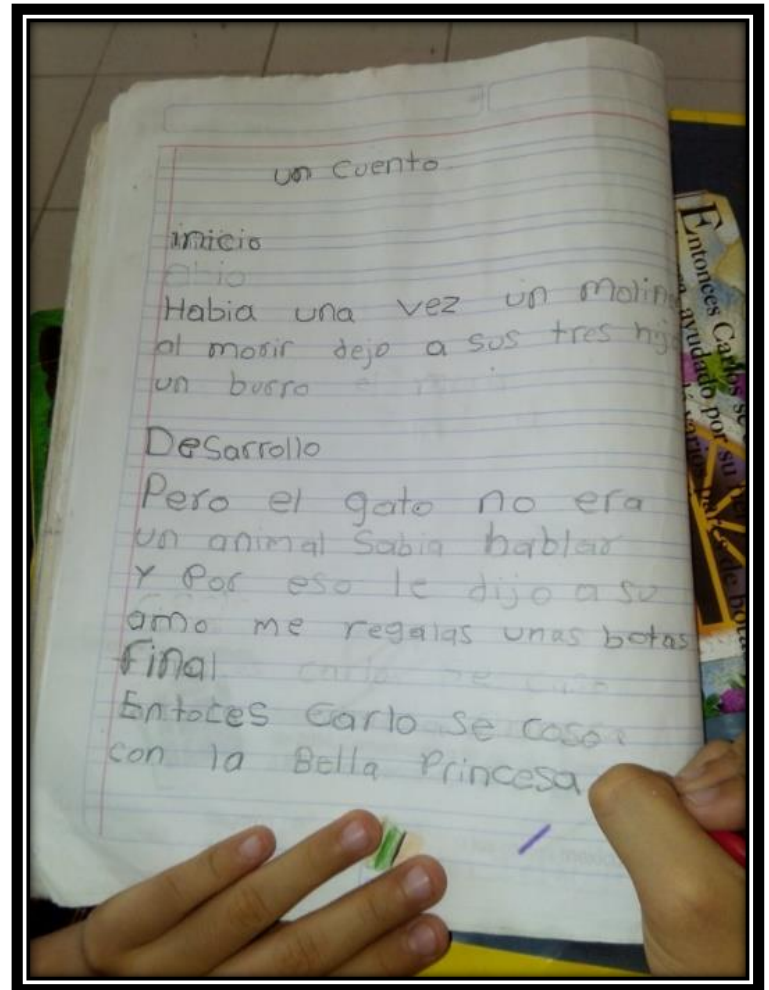 un cuento
inicio
Habia una vez un molin
al morir dejo a sus tres hij
un burro
Desarrollo
Pero el gato no era
un animal Sabia hablar
Y Por eso le dijo a su
amo me regalas unas botas
Final
Entoces Carlo se caso
con la Bella Princesa
Entonces Carlos se
ayudado por su
varios
de bota